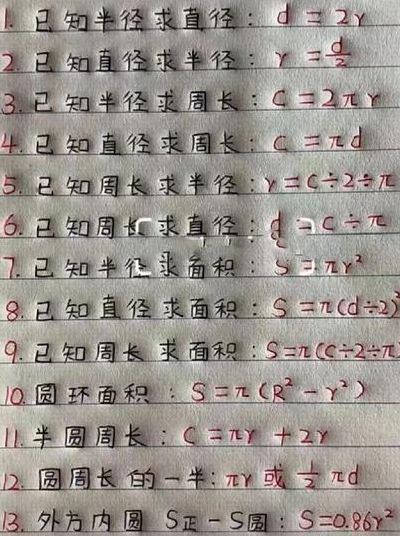 1. 已知半径求直径: d = 2r
2. 已知直径求半径: r = d/2
3. 已知半径求周长: C = 2πr
4. 已知直径求周长: C = πd
5. 已知周长求半径: r = C÷2÷π
6. 已知周长求直径: d = C÷π
7. 已知半径求面积: S = πr²
8. 已知直径求面积: S = π(d÷2)²
9. 已知周长求面积: S=π(C÷2÷π)
10. 圆环面积: S = π(R²-r²)
11. 半圆周长: C = πr + 2r
12. 圆周长的一半: πr 或 1/2 πd
13. 外方内圆 S正-S圆: S=0.86r²